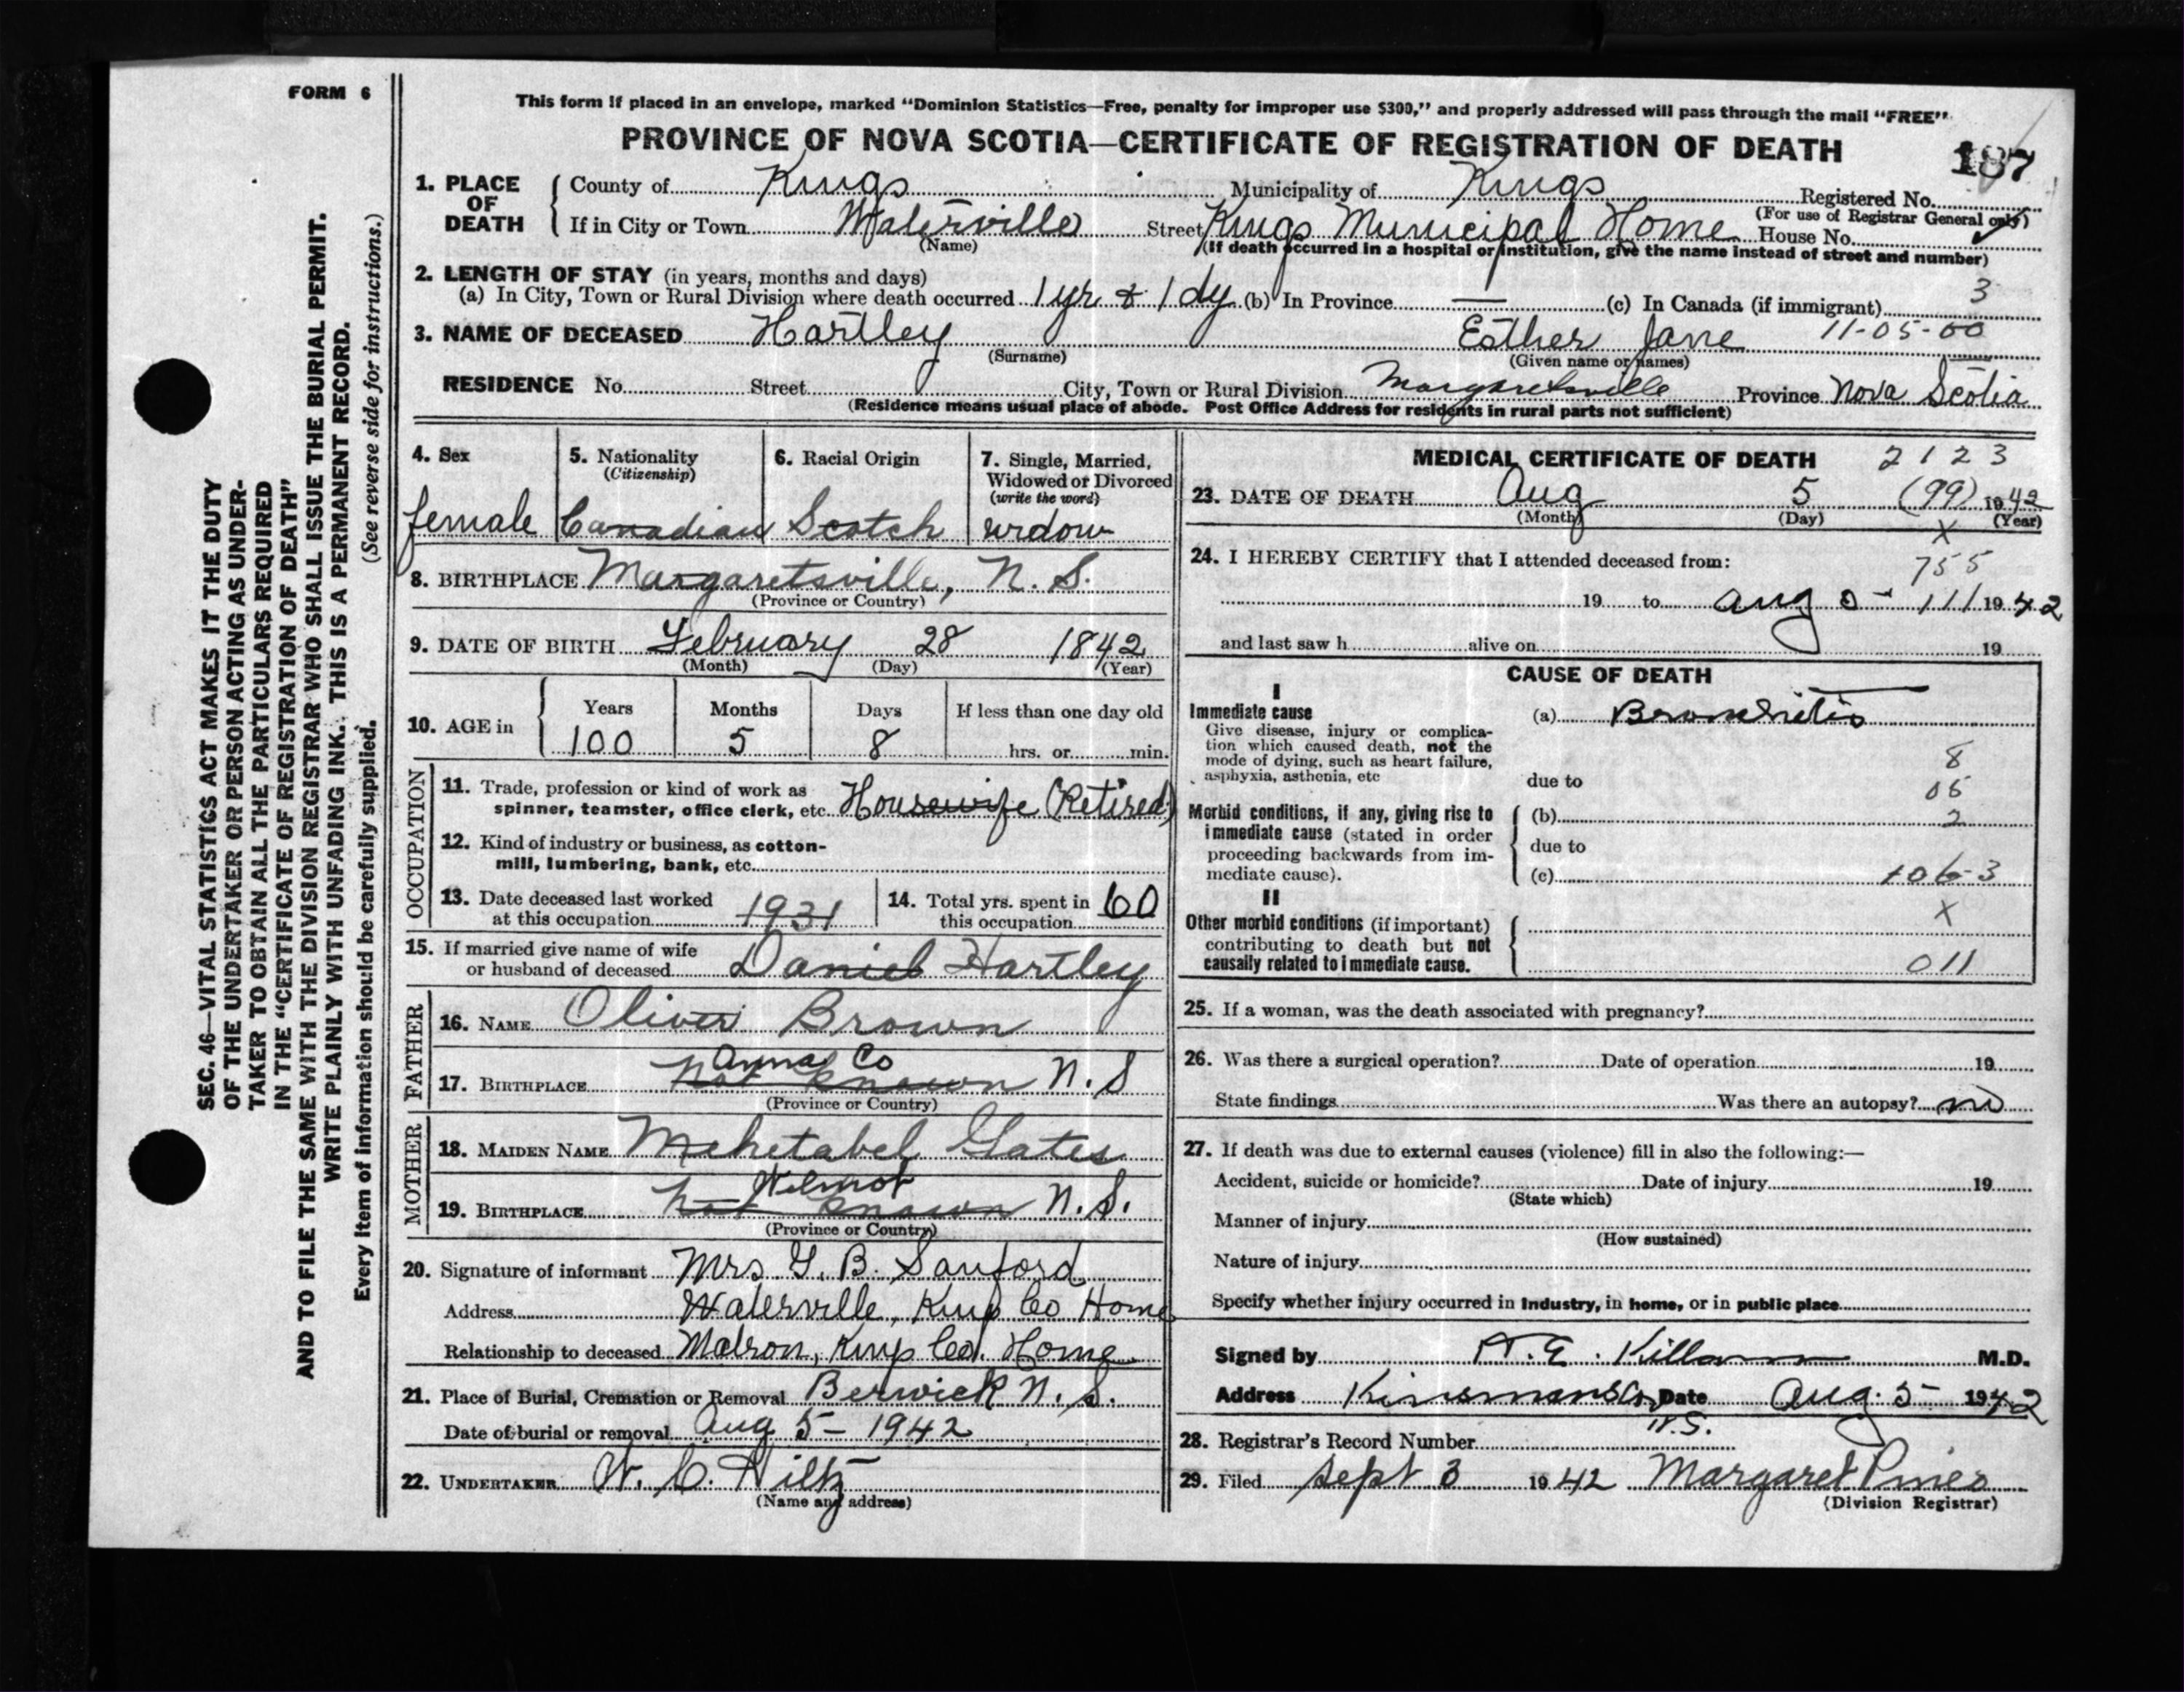 FORM 6
This form if placed in an envelope, marked "Dominion Statistics—Free, penalty for improper use $300," and properly addressed will pass through the mail "FREE"
PROVINCE OF NOVA SCOTIA—CERTIFICATE OF REGISTRATION OF DEATH
187
1. PLACE OF DEATH
County of Kings Municipality of Kings Registered No.
(For use of Registrar General only)
If in City or Town Waterville Street Kings Municipal Home House No.
(Name) (If death occurred in a hospital or institution, give the name instead of street and number)
2. LENGTH OF STAY (in years, months and days)
(a) In City, Town or Rural Division where death occurred 1 yr & 1 dy (b) In Province — (c) In Canada (if immigrant) 3
3. NAME OF DECEASED Hartley Esther Jane 11-05-00
(Surname) (Given name or names)
RESIDENCE No. Street City, Town or Rural Division Margaretsville Province Nova Scotia
(Residence means usual place of abode. Post Office Address for residents in rural parts not sufficient)
4. Sex
female
5. Nationality
(Citizenship)
Canadian
6. Racial Origin
Scotch
7. Single, Married,
Widowed or Divorced
(write the word)
widow
8. BIRTHPLACE Margaretsville, N. S.
(Province or Country)
9. DATE OF BIRTH February 28 1842
(Month) (Day) (Year)
10. AGE in
Years Months Days If less than one day old
100 5 8 hrs. or min.
OCCUPATION
11. Trade, profession or kind of work as
spinner, teamster, office clerk, etc. Housewife (Retired)
12. Kind of industry or business, as cotton-
mill, lumbering, bank, etc.
13. Date deceased last worked
at this occupation 1931
14. Total yrs. spent in
this occupation 60
15. If married give name of wife
or husband of deceased Daniel Hartley
FATHER
16. NAME Oliver Brown
Anna Co
17. BIRTHPLACE not known N.S
(Province or Country)
MOTHER
18. MAIDEN NAME Mehetabel Gates
Wilmot
19. BIRTHPLACE not known N.S.
(Province or Country)
20. Signature of informant Mrs G. B. Sanford
Address Waterville, Kings Co Home
Relationship to deceased Matron, Kings Co. Home
21. Place of Burial, Cremation or Removal Berwick N. S.
Date of burial or removal Aug 5 - 1942
22. UNDERTAKER W. C. Hiltz
(Name and address)
MEDICAL CERTIFICATE OF DEATH 2123
23. DATE OF DEATH Aug 5 (99) 1942
(Month) (Day) (Year)
X
24. I HEREBY CERTIFY that I attended deceased from:
755
19 to Aug 5 - 111 1942
and last saw h alive on 19
CAUSE OF DEATH
I
Immediate cause
Give disease, injury or complica-
tion which caused death, not the
mode of dying, such as heart failure,
asphyxia, asthenia, etc
(a) Bronchitis
8
due to
05
Morbid conditions, if any, giving rise to
immediate cause (stated in order
proceeding backwards from im-
mediate cause).
(b) 2
due to
(c) 106-3
II
X
Other morbid conditions (if important)
contributing to death but not
causally related to immediate cause.
011
25. If a woman, was the death associated with pregnancy?
26. Was there a surgical operation? Date of operation 19
State findings Was there an autopsy? no
27. If death was due to external causes (violence) fill in also the following:—
Accident, suicide or homicide? Date of injury 19
(State which)
Manner of injury
(How sustained)
Nature of injury
Specify whether injury occurred in industry, in home, or in public place
Signed by Killam M.D.
Address Date Aug. 5 - 1942
N.S.
28. Registrar's Record Number
29. Filed Sept 3 1942 Margaret Pineo
(Division Registrar)
SEC. 46—VITAL STATISTICS ACT MAKES IT THE DUTY
OF THE UNDERTAKER OR PERSON ACTING AS UNDER-
TAKER TO OBTAIN ALL THE PARTICULARS REQUIRED
IN THE "CERTIFICATE OF REGISTRATION OF DEATH"
AND TO FILE THE SAME WITH THE DIVISION REGISTRAR WHO SHALL ISSUE THE BURIAL PERMIT.
WRITE PLAINLY WITH UNFADING INK. THIS IS A PERMANENT RECORD.
Every item of information should be carefully supplied. (See reverse side for instructions.)